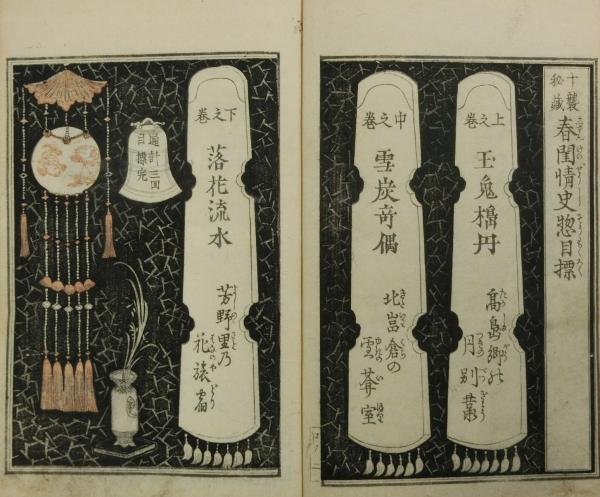 十襲
秘蔵
春閨情史惣目標
上之巻
玉兎搗丹
高島郷の
月別業
中之巻
雪炭奇偶
北嵓倉の
雪菴室
下之巻
落花流水
芳野里乃
花旅宿
通計三回
目標完